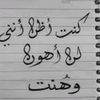 كنت أظن أنني
لن أهون
وهُنت